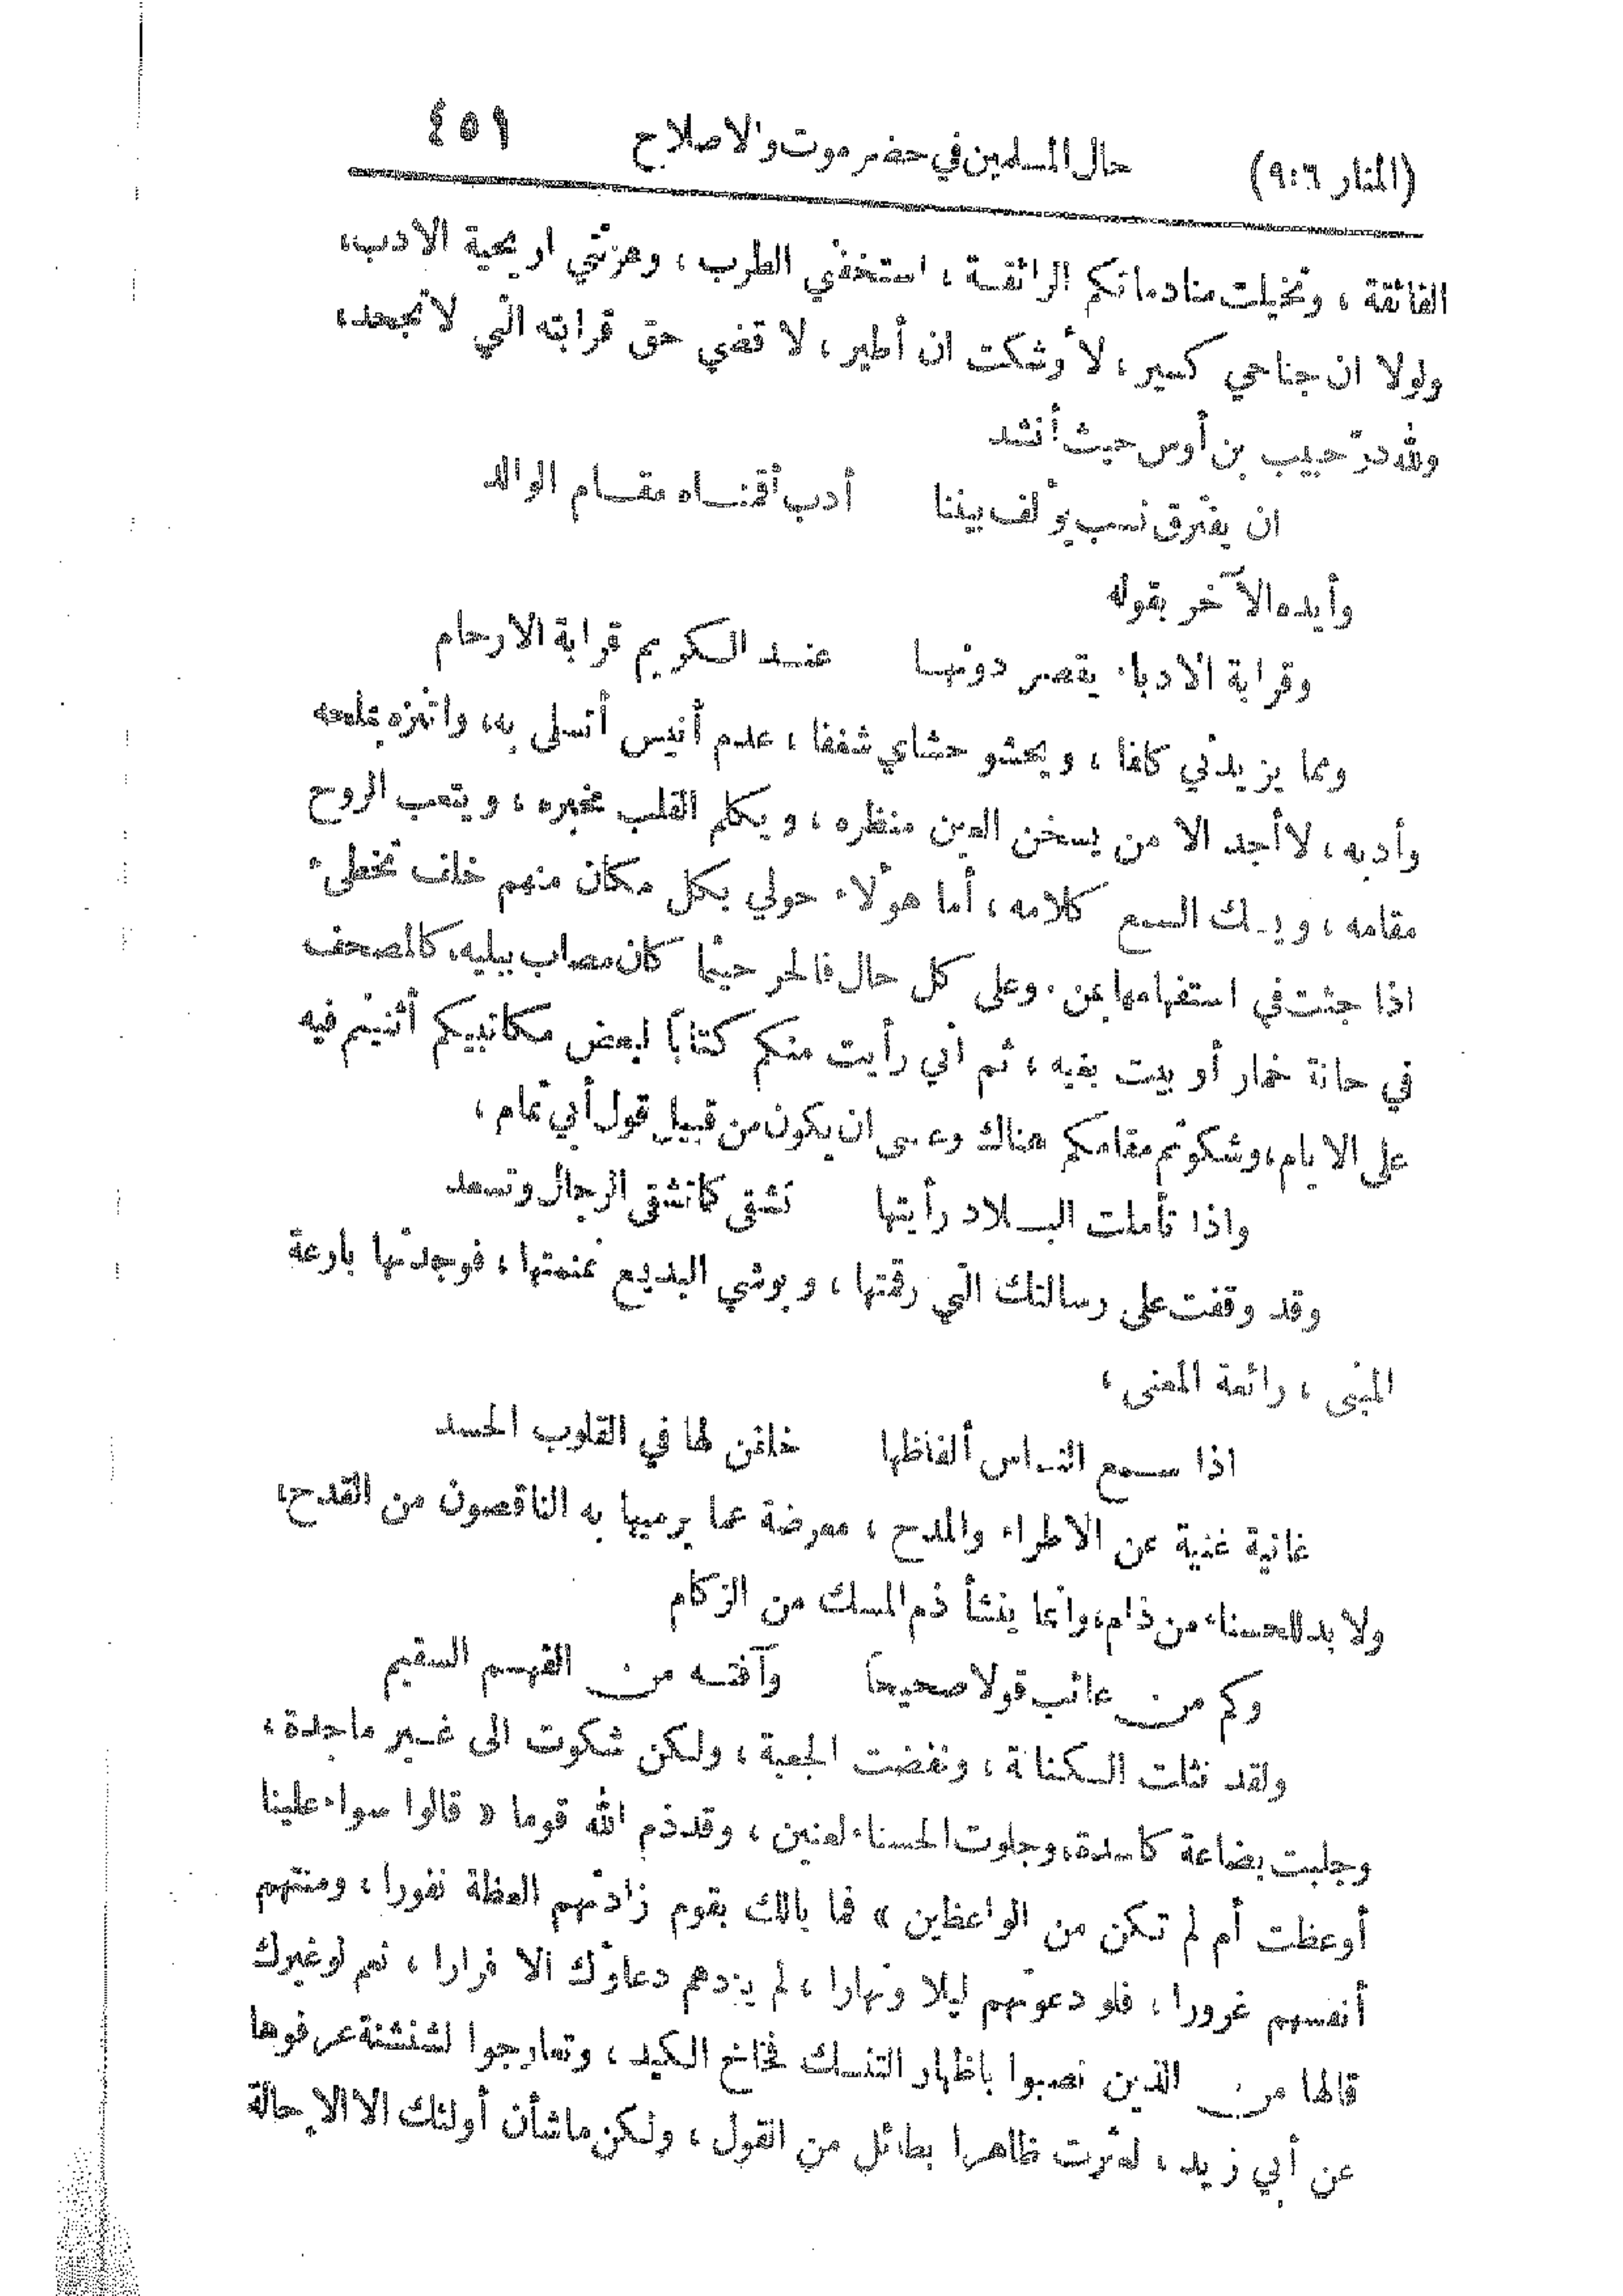 (المنار ٩:٦) حال المسلمين في حضرموت والاصلاح ٤٥١
الفائقة ، وتخيلت منادماتكم الرائقة ، استخفني الطرب ، وهزتني اريحية الادب،
ولولا ان جناحي كسير ، لأوشكت ان أطير ، لا قضي حق قرابته التي لا تجحد،
ولله درّ حبيب بن أوس حيث أنشد
ان يفترق نسب يؤلف بيننا أدب أقمناه مقام الوالد
وأيده الآخر بقوله
وقرابة الادباء يقصر دونها عند الكريم قرابة الارحام
ومما يزيدني كلفا ، ويحشو حشاي شغفا ، عدم أنيس أتسلى به، واتنزه بملحه
وأدبه ، لا أجد الا من يسخن العين منظره ، ويكلم القلب مخبره ، ويتعب الروح
مقامه ، ويسك السمع كلامه ، أما هؤلاء حولي بكل مكان منهم خلف تخطىء
اذا جئت في استفهامها بمن . وعلى كل حال فالحر حيثما كان مصاب ببليه، كالمصحف
في حانة خمار أو بيت بغيه ، ثم أني رأيت منكم كتاباً لبعض مكاتبيكم أثنيتم فيه
على الايام، وشكوتم مقامكم هناك وعسى ان يكون من قبيل قول أبي تمام ،
واذا تأملت البلاد رأيتها تشقى كما تشقى الرجال وتسعد
وقد وقفت على رسالتك التي رقمتها ، وبوشي البديع نمنمتها ، فوجدتها بارعة
المبنى ، رائعة المعنى ،
اذا سمع الناس ألفاظها خلقن لها في القلوب الحسد
غانية غنية عن الاطراء والمدح ، معرضة عما يرميها به الناقصون من القدح،
ولا بد للحسناء من ذام، وانما ينشأ ذم المسك من الزكام
وكم من عائب قولا صحيحاً وآفته من الفهم السقيم
ولقد نثلت الكنانة ، ونفضت الجعبة ، ولكن شكوت الى غير ماجدة ،
وجلبت بضاعة كاسدة، وجلوت الحسناء لعنين ، وقد ذم الله قوما « قالوا سواء علينا
أوعظت أم لم تكن من الواعظين » فما بالك بقوم زادتهم العظة نفورا ، ومنتهم
أنفسهم غرورا ، فلو دعوتهم ليلا ونهارا ، لم يزدهم دعاؤك الا فرارا ، نعم لو غيرك
قالها من الذين نصبوا باظهار التنسك فخاخ الكيد ، وتعارجوا لشنشنة عرفوها
عن أبي زيد ، لأثرت ظاهرا بطائل من القول ، ولكن ماشأن أولئك الا الاحالة